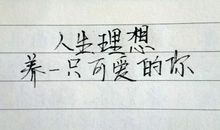 人生理想
养一只可爱的你